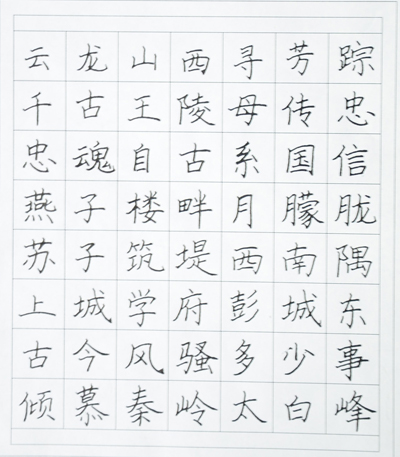 云龙山西寻芳踪
千古王陵母传忠
忠魂自古系国信
燕子楼畔月朦胧
苏子筑堤西南隅
上城学府彭城东
古今风骚多少事
倾慕秦岭太白峰